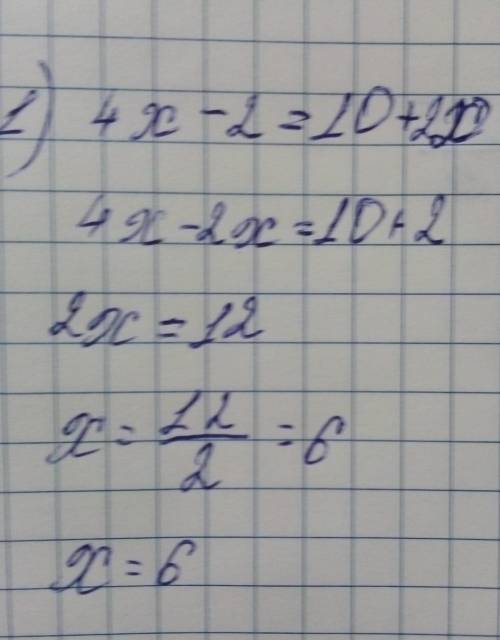 1) 4x - 2 = 10 + 2x
4x - 2x = 10 + 2
2x = 12
x = 12/2 = 6
x = 6